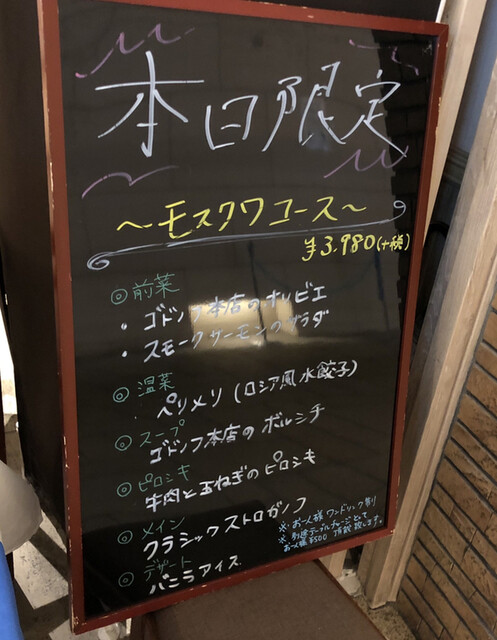 本日限定
～モスクワコース～
¥3,980(+税)
◎前菜
・ゴドノフ本店のオリビエ
・スモークサーモンサラダ
◎温菜
・ペリメリ(ロシア風水餃子)
◎スープ
ゴドノフ本店のボルシチ
◎ピロシキ
牛肉と玉ねぎのピロシキ
◎メイン
クラシックストロガノフ
◎デザート
バニラアイス
※お一人様ワンドリンク制り
※別途テーブルチャージとして
お一人様¥500頂戴致します。